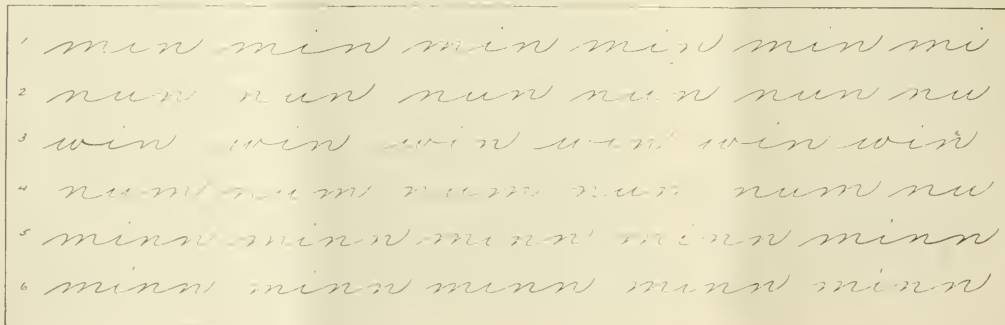 1 min min min min min mi
2 nun nun nun nun nun nu
3 win win win win win win
4 num num num num num nu
5 minn minn minn minn minn
6 minn minn minn minn minn